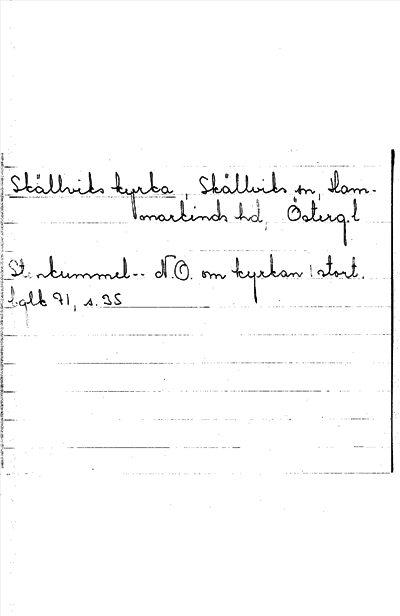 Skällviks kyrka, Skällviks sn, Ham-
markinds hd, Östergl
St. nkummel-- N.O. om kyrkan : stort.
91, s. 35